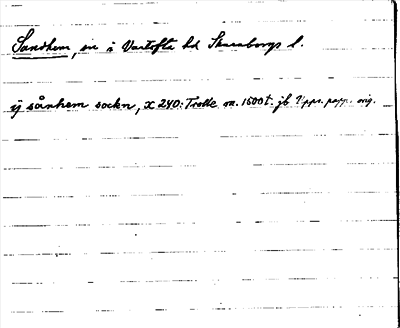 Sandhem, sn i Vartofta hd Skaraborgs l.
ij sånhem sockn, X 240: Trolle m. 1500 t. jb Upps. papp. orig.